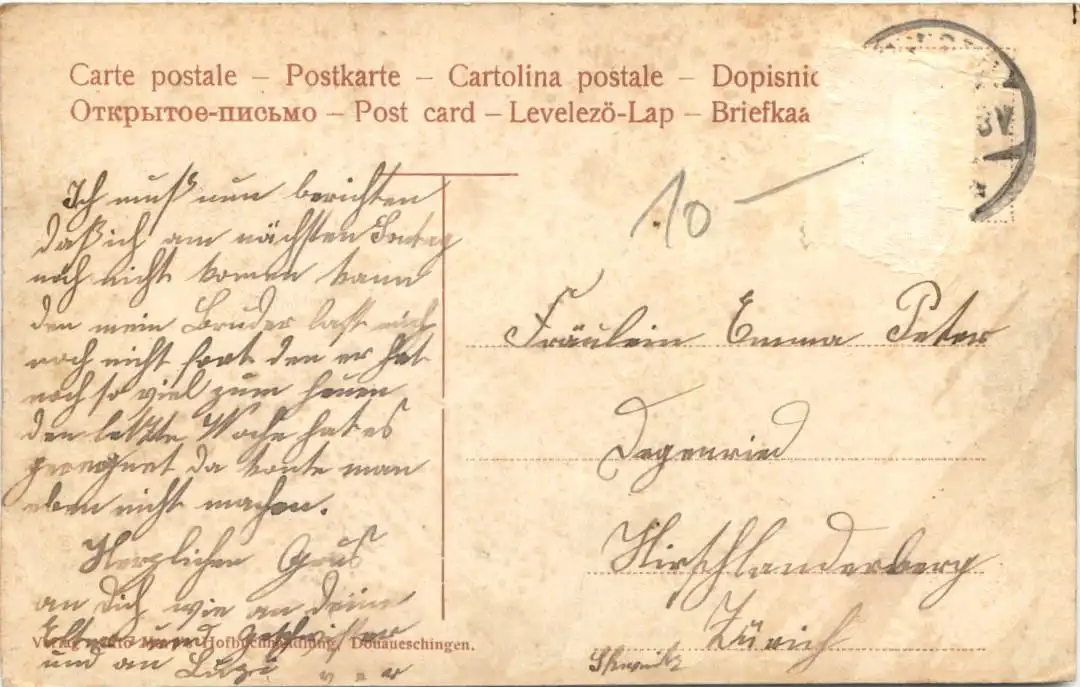 Carte postale – Postkarte – Cartolina postale – Dopisnic
Открытое-письмо – Post card – Levelezö-Lap – Briefkaa
Ich muß nun berichten
daß ich am nächsten
noch nicht komen kann
den mein Bruder last mich
noch nicht fort den er hat
noch so viel zum heuen
den letzte Woche hat es
geregnet da konte man
eben nicht machen.
Herzlichen Grus
an Dich wie an deine
Eltern und Geschwister
und an
10 –
Fräulein Emma Peter
Degenried
Hirschlanderberg
Zürich
Verlag Otto Hofbuchhandlung, Donaueschingen.